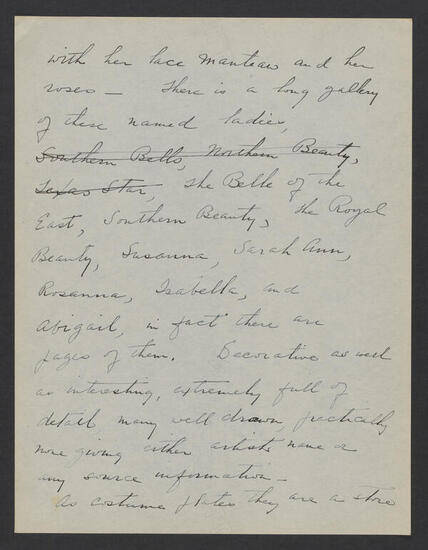 with her lace manteau and her
roses — There is a long gallery
of these named ladies,
Southern Bells, Northern Beauty,
Texas Star, The Belle of the
East, Southern Beauty, The Royal
Beauty, Susanna, Sarah Ann,
Rosanna, Isabella, and
Abigail, in fact there are
pages of them. Decorative as well
as interesting, extremely full of
detail, many well drawn, practically
none giving either artists name or
any source information —
As costume plates they are a store